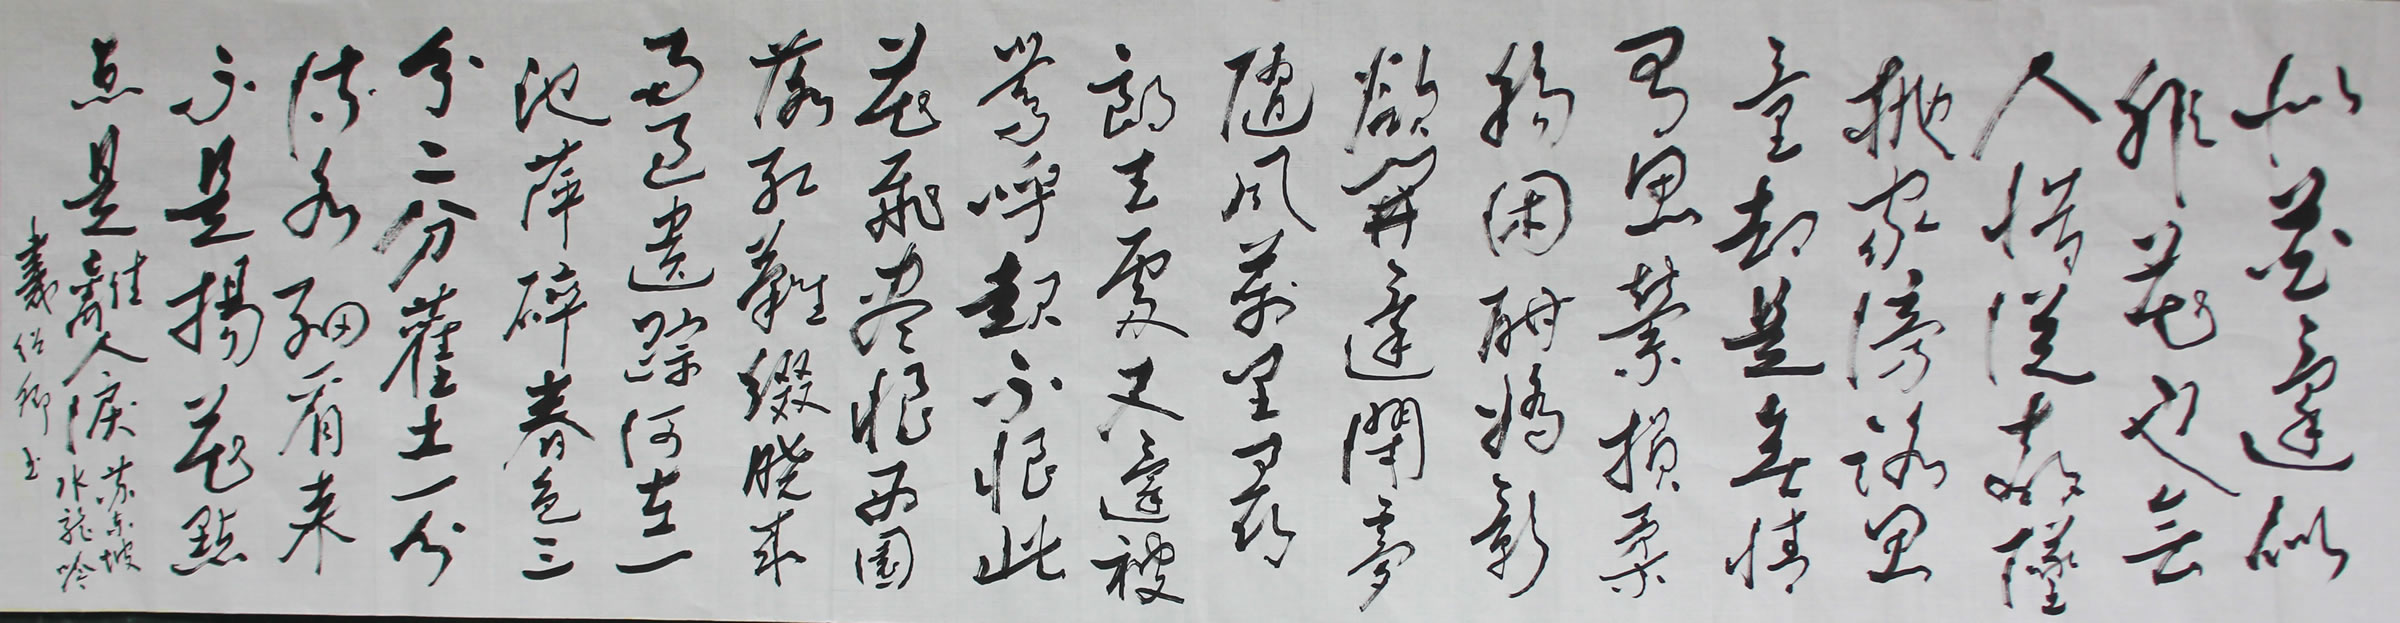 似花還似
非花也無
人惜從教墜
拋家傍路思
量却是無情
有思縈損柔
腸困酣嬌
欲開還閉夢
隨風萬里尋
郎去處又還被
鶯呼起不恨此
花飛盡恨西園
落紅難綴曉来
雨過遺踪何在一
池萍碎春色三
分二分土一分
流水細看来
不是揚花點
点是離人淚
苏东坡
水龍吟
书